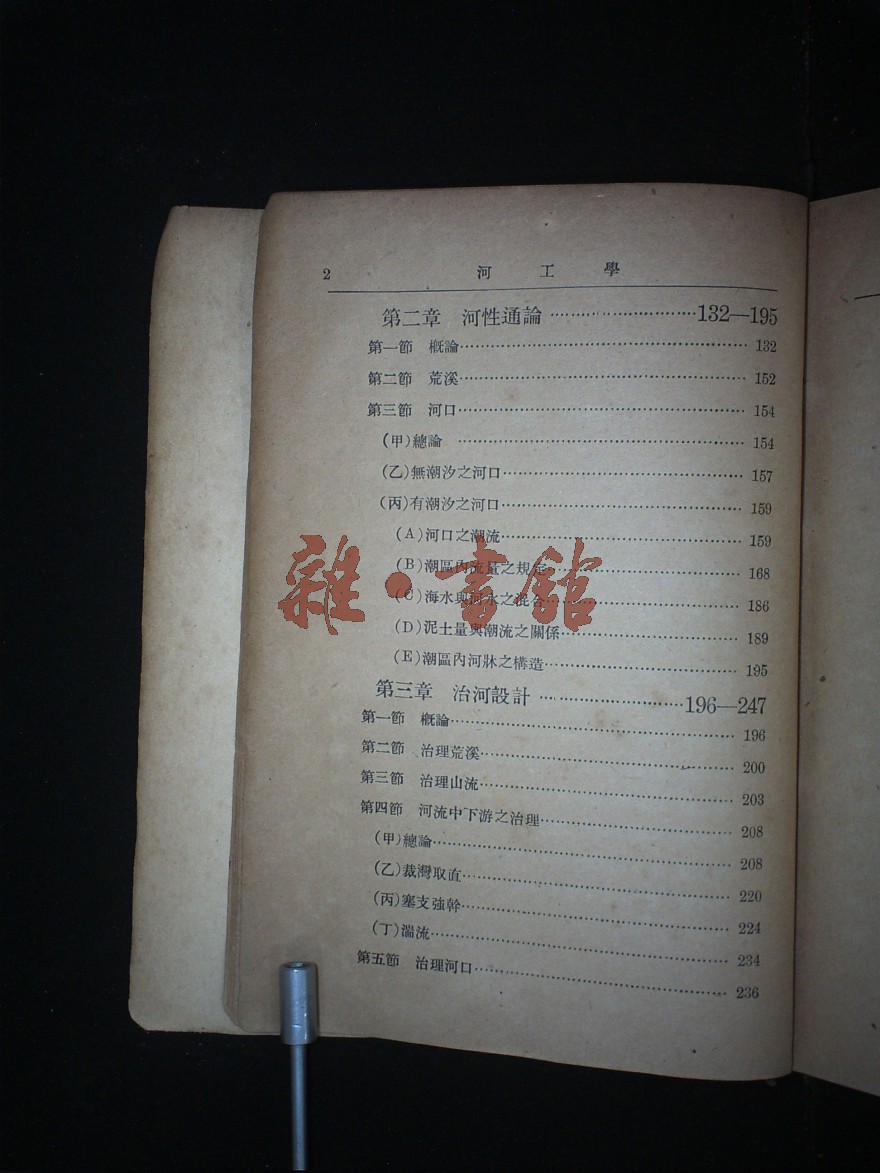 2 河工學
第二章 河性通論……………………132—195
第一節 槪論……………………132
第二節 荒溪……………………152
第三節 河口……………………154
(甲)總論……………………154
(乙)無潮汐之河口……………………157
(丙)有潮汐之河口……………………159
(A)河口之潮流……………………159
(B)潮區內流量之規定……………………168
(C)海水與河水之混合……………………186
(D)泥土量與潮流之關係……………………189
(E)潮區內河牀之構造……………………195
第三章 治河設計……………………196—247
第一節 槪論……………………196
第二節 治理荒溪……………………200
第三節 治理山流……………………203
第四節 河流中下游之治理……………………208
(甲)總論……………………208
(乙)裁灣取直……………………220
(丙)塞支強幹……………………224
(丁)湍流……………………234
第五節 治理河口……………………236
雜·書館